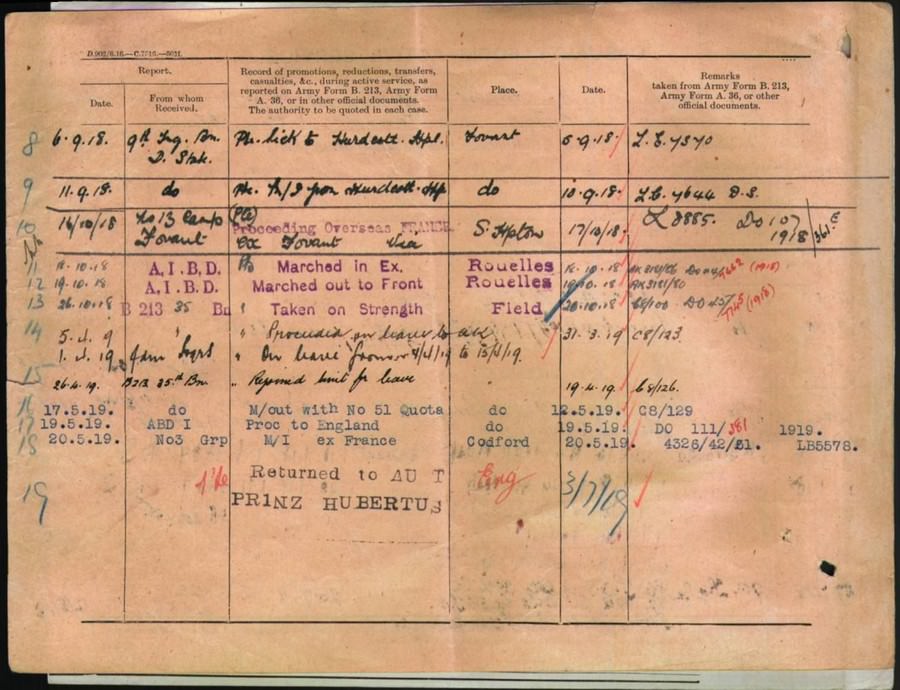 D.902/6.16.—C.7516.—5031.
Report.
Date.
From whom
Received.
Record of promotions, reductions, transfers,
casualties, &c., during active service, as
reported on Army Form B. 213, Army Form
A. 36, or in other official documents.
The authority to be quoted in each case.
Place.
Date.
Remarks
taken from Army Form B. 213,
Army Form A. 36, or other
official documents.
8 6.9.18. 9th Trg. Bn. Pte. Sick to Hurdcott. Hpl. Fovant 5.9.18.
9 11.9.18. do Hurdcott. do 10.9.18.
10 16/10/18 No 13 Camp Proceeding Overseas FRANCE S. Hpton 17/10/18. 8885. DO 107
Fovant ex Fovant Via 1918
11 18.10.18 A.I.B.D. Marched in Ex. Rouelles 18.10.18 (1918)
12 19.10.18 A.I.B.D. Marched out to Front Rouelles 19.10.18
13 26.10.18 B 213 35 Bn " Taken on Strength Field 20.10.18 (1918)
14 5.4.9 " " Proceeded on leave to 31.3.19 C8/123
1.4.19 " On leave from to 15/4/19
15 26.4.19. B213 35th Bn. " Rejoined unit fr leave 19.4.19 C8/126.
16 17.5.19. do M/out with No 51 Quota do 12.5.19. C8/129
17 19.5.19. ABD I Proc to England do 19.5.19. DO 111/381 1919.
18 20.5.19. No3 Grp M/I ex France Codford 20.5.19. 4326/42/51. LB5578.
Returned to AUST Eng 3/7/19
19 PRINZ HUBERTUS